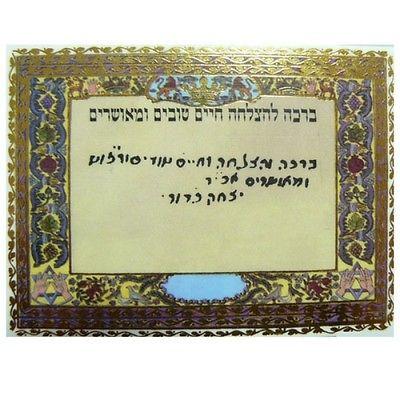 ברכה להצלחה חיים טובים ומאושרים
ברכה הצלחה וחיים
ומאושרים אכי"ר
יצחק כדורי